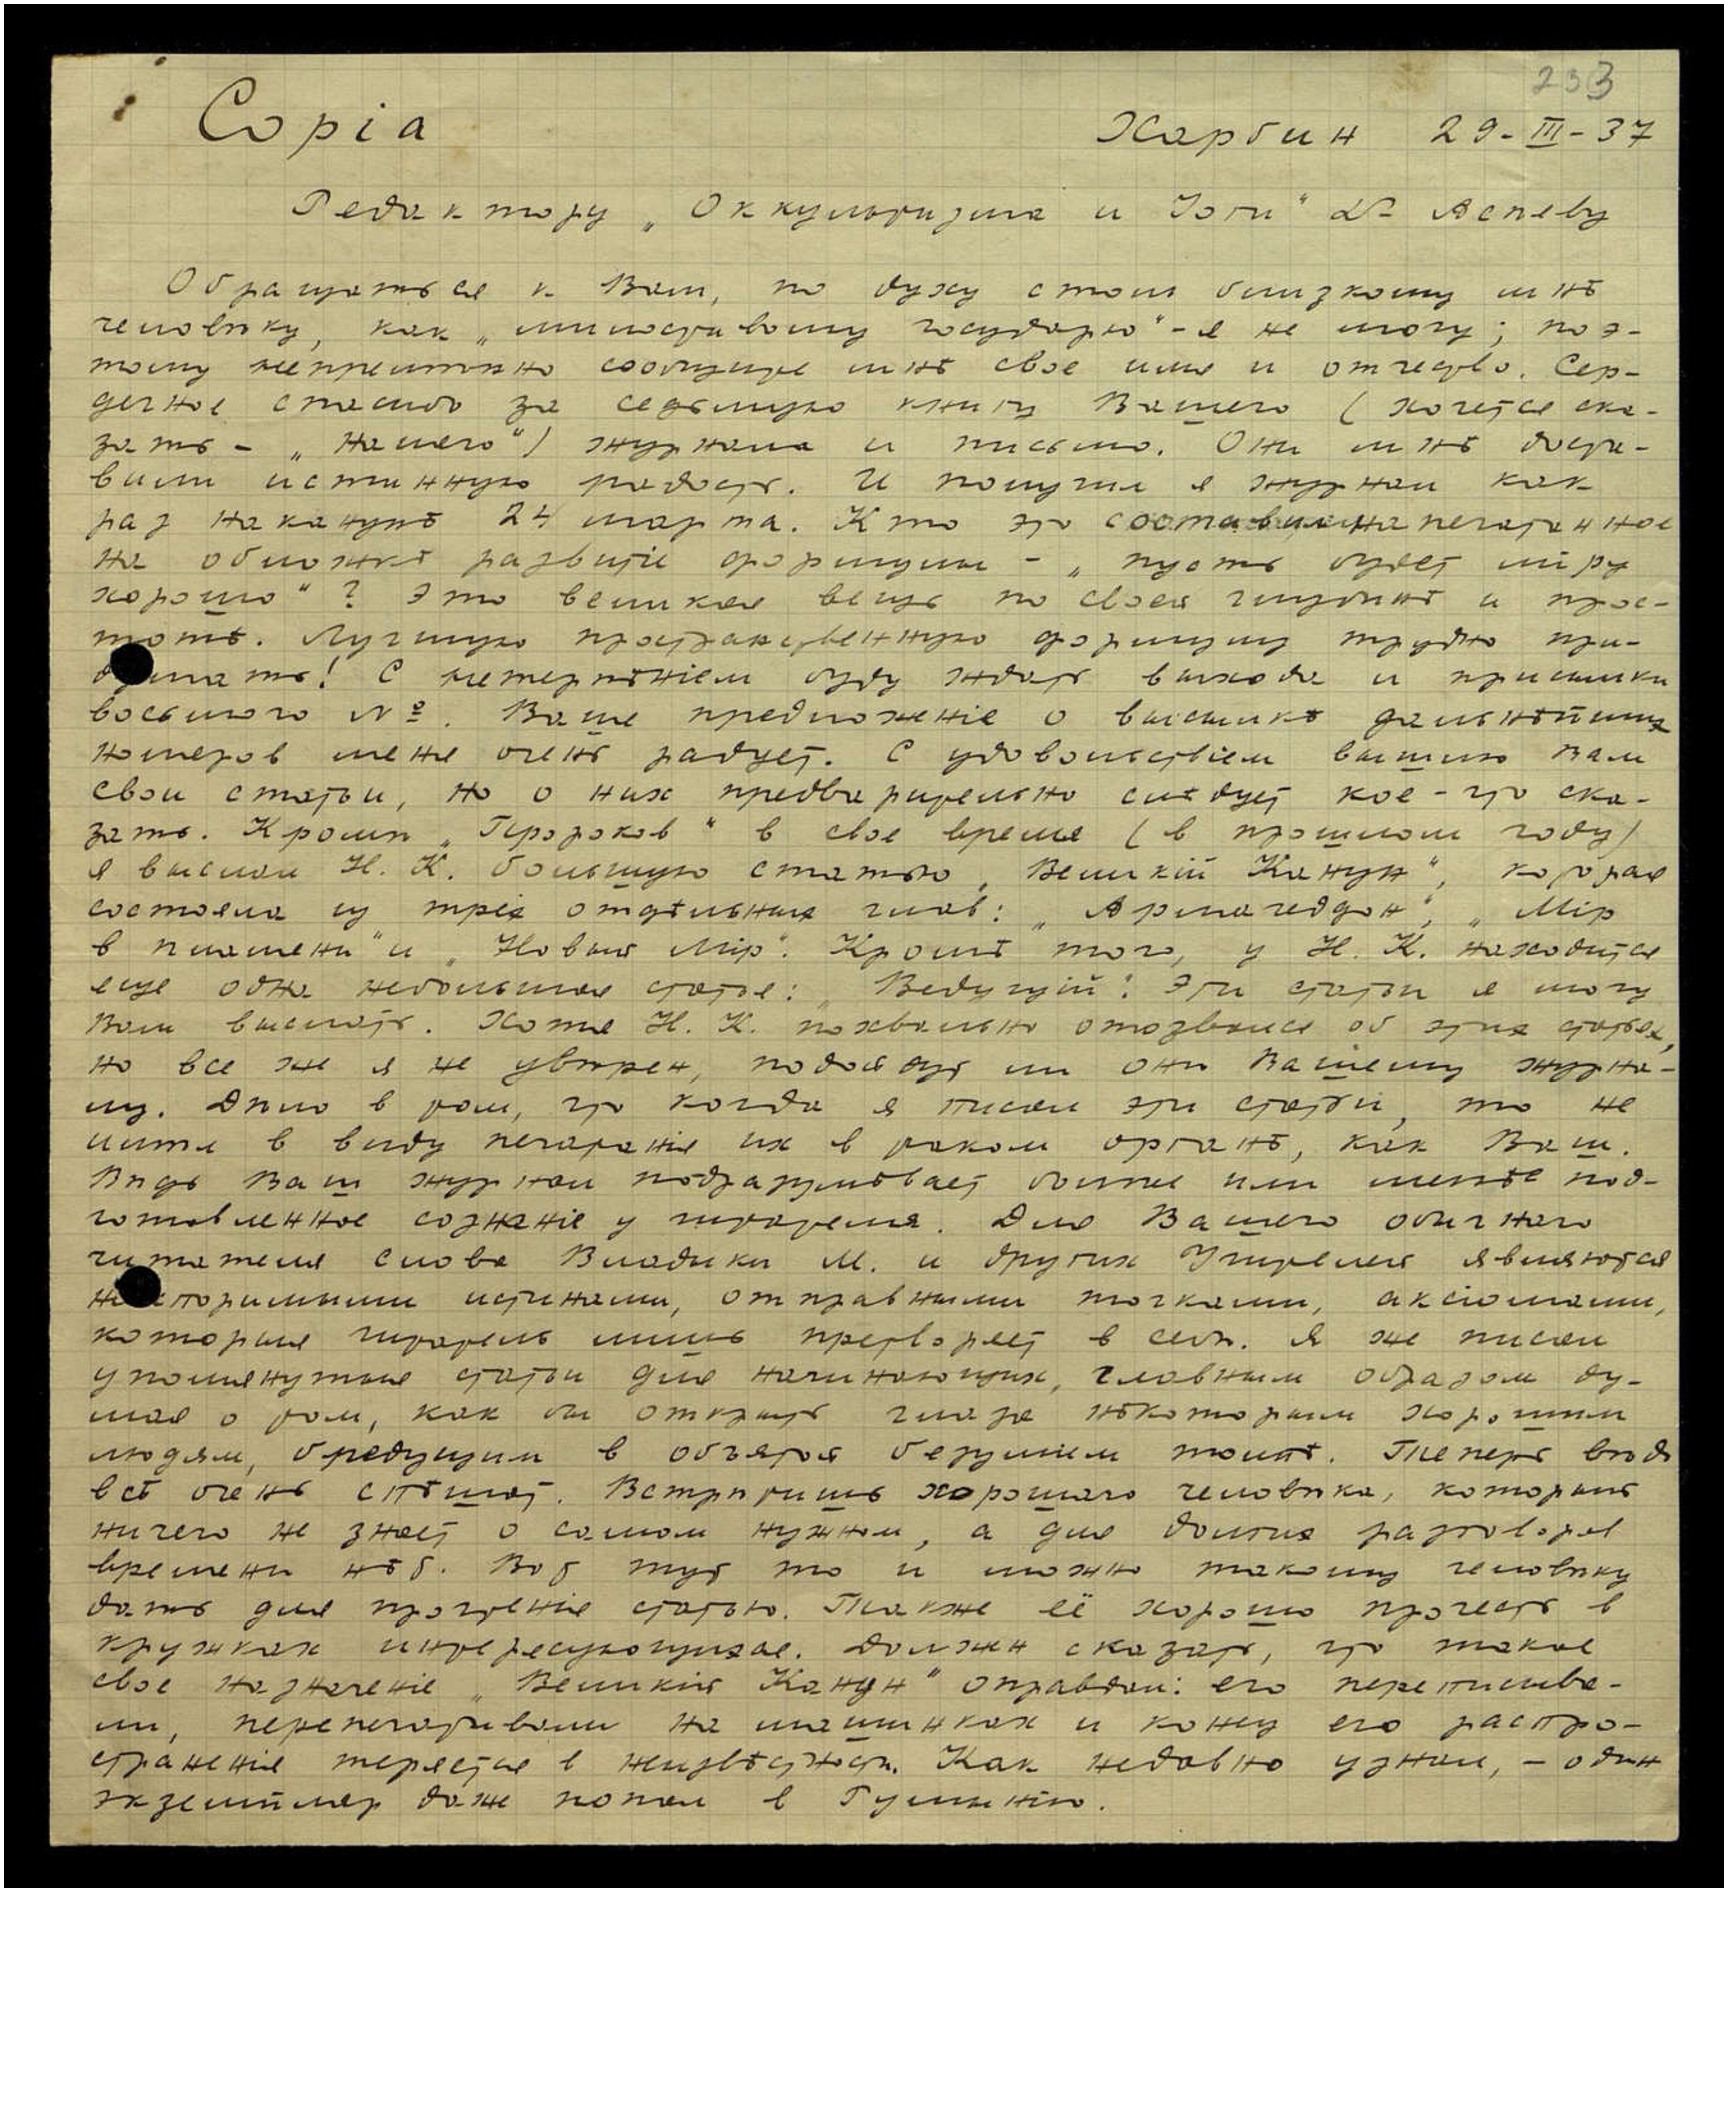 233
Copia
Харбин 29-III-37
Редактору „Оккультизма и Йоги" Dr Асееву
Обращаться к Вам, по духу столь близкому мнѣ
человѣку, как „милостивому государю" - я не могу; поэ-
тому непремѣнно сообщите мнѣ свое имя и отчество. Сер-
дечное спасибо за седьмую книгу Вашего (хочется ска-
зать - „нашего") журнала и письмо. Они мнѣ доста-
вили истинную радость. И получил я журнал как
раз наканунѣ 24 марта. Кто это составил напечатанное
на обложкѣ развитіе формулы - „пусть будет міру
хорошо"? Это великая вещь по своей глубинѣ и прос-
тотѣ. Лучшую пространственную формулу трудно при-
думать! С нетерпѣніем буду ждать выхода и присылки
восьмого №. Ваше предложеніе о высылкѣ дальнѣйших
номеров меня очень радует. С удовольствіем вышлю Вам
свои статьи, но о них предварительно слѣдует кое-что ска-
зать. Кромѣ „Пророков" в свое время (в прошлом году)
я выслал Н. К. большую статью „Великій Канун", которая
состояла из трех отдѣльных глав: „Армагеддон", „Мір
в пламени" и „Новый Мір". Кромѣ того, у Н. К. находится
еще одна небольшая статья: „Ведущій". Эти статьи я могу
Вам выслать. Хотя Н. К. похвально отозвался об этих статьях,
но все же я не увѣрен, подойдут ли они Вашему журна-
лу. Дѣло в том, что когда я писал эти статьи, то не
имѣл в виду печатанія их в таком органѣ, как Ваш.
Вѣдь Ваш журнал подразумѣвает болѣе или менѣе под-
готовленное сознаніе у читателя. Для Вашего обычнаго
читателя слова Владыки М. и других Учителей являются
неоспоримыми истинами, отправными точками, аксіомами,
которые читатель лишь претворяет в себѣ. Я же писал
упомянутые статьи для начинающих, главным образом ду-
мая о том, как бы открыть глаза нѣкоторым хорошим
людям, бредущим в объятой безуміем толпѣ. Теперь вѣдь
всѣ очень спѣшат. Встрѣтишь хорошаго человѣка, который
ничего не знает о самом нужном, а для долгих разговоров
времени нѣт. Вот тут то и можно такому человѣку
дать для прочтенія статью. Также её хорошо прочесть в
кружках интересующихся. Должен сказать, что такое
свое назначеніе „Великій Канун" оправдал: его переписыва-
ли, перепечатывали на машинках и конец его распро-
страненія теряется в неизвѣстности. Как недавно узнал, - один
экземпляр даже попал в Румынію.